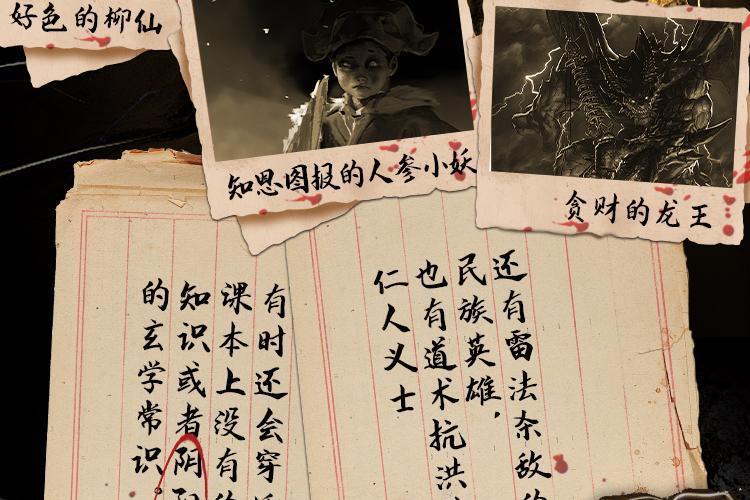 好色的柳仙
知恩图报的人参小妖
贪财的龙王
还有雷法杀敌的
民族英雄，
也有道术抗洪
仁人义士
有时还会穿
课本上没有
知识或者阴
的玄学常识。